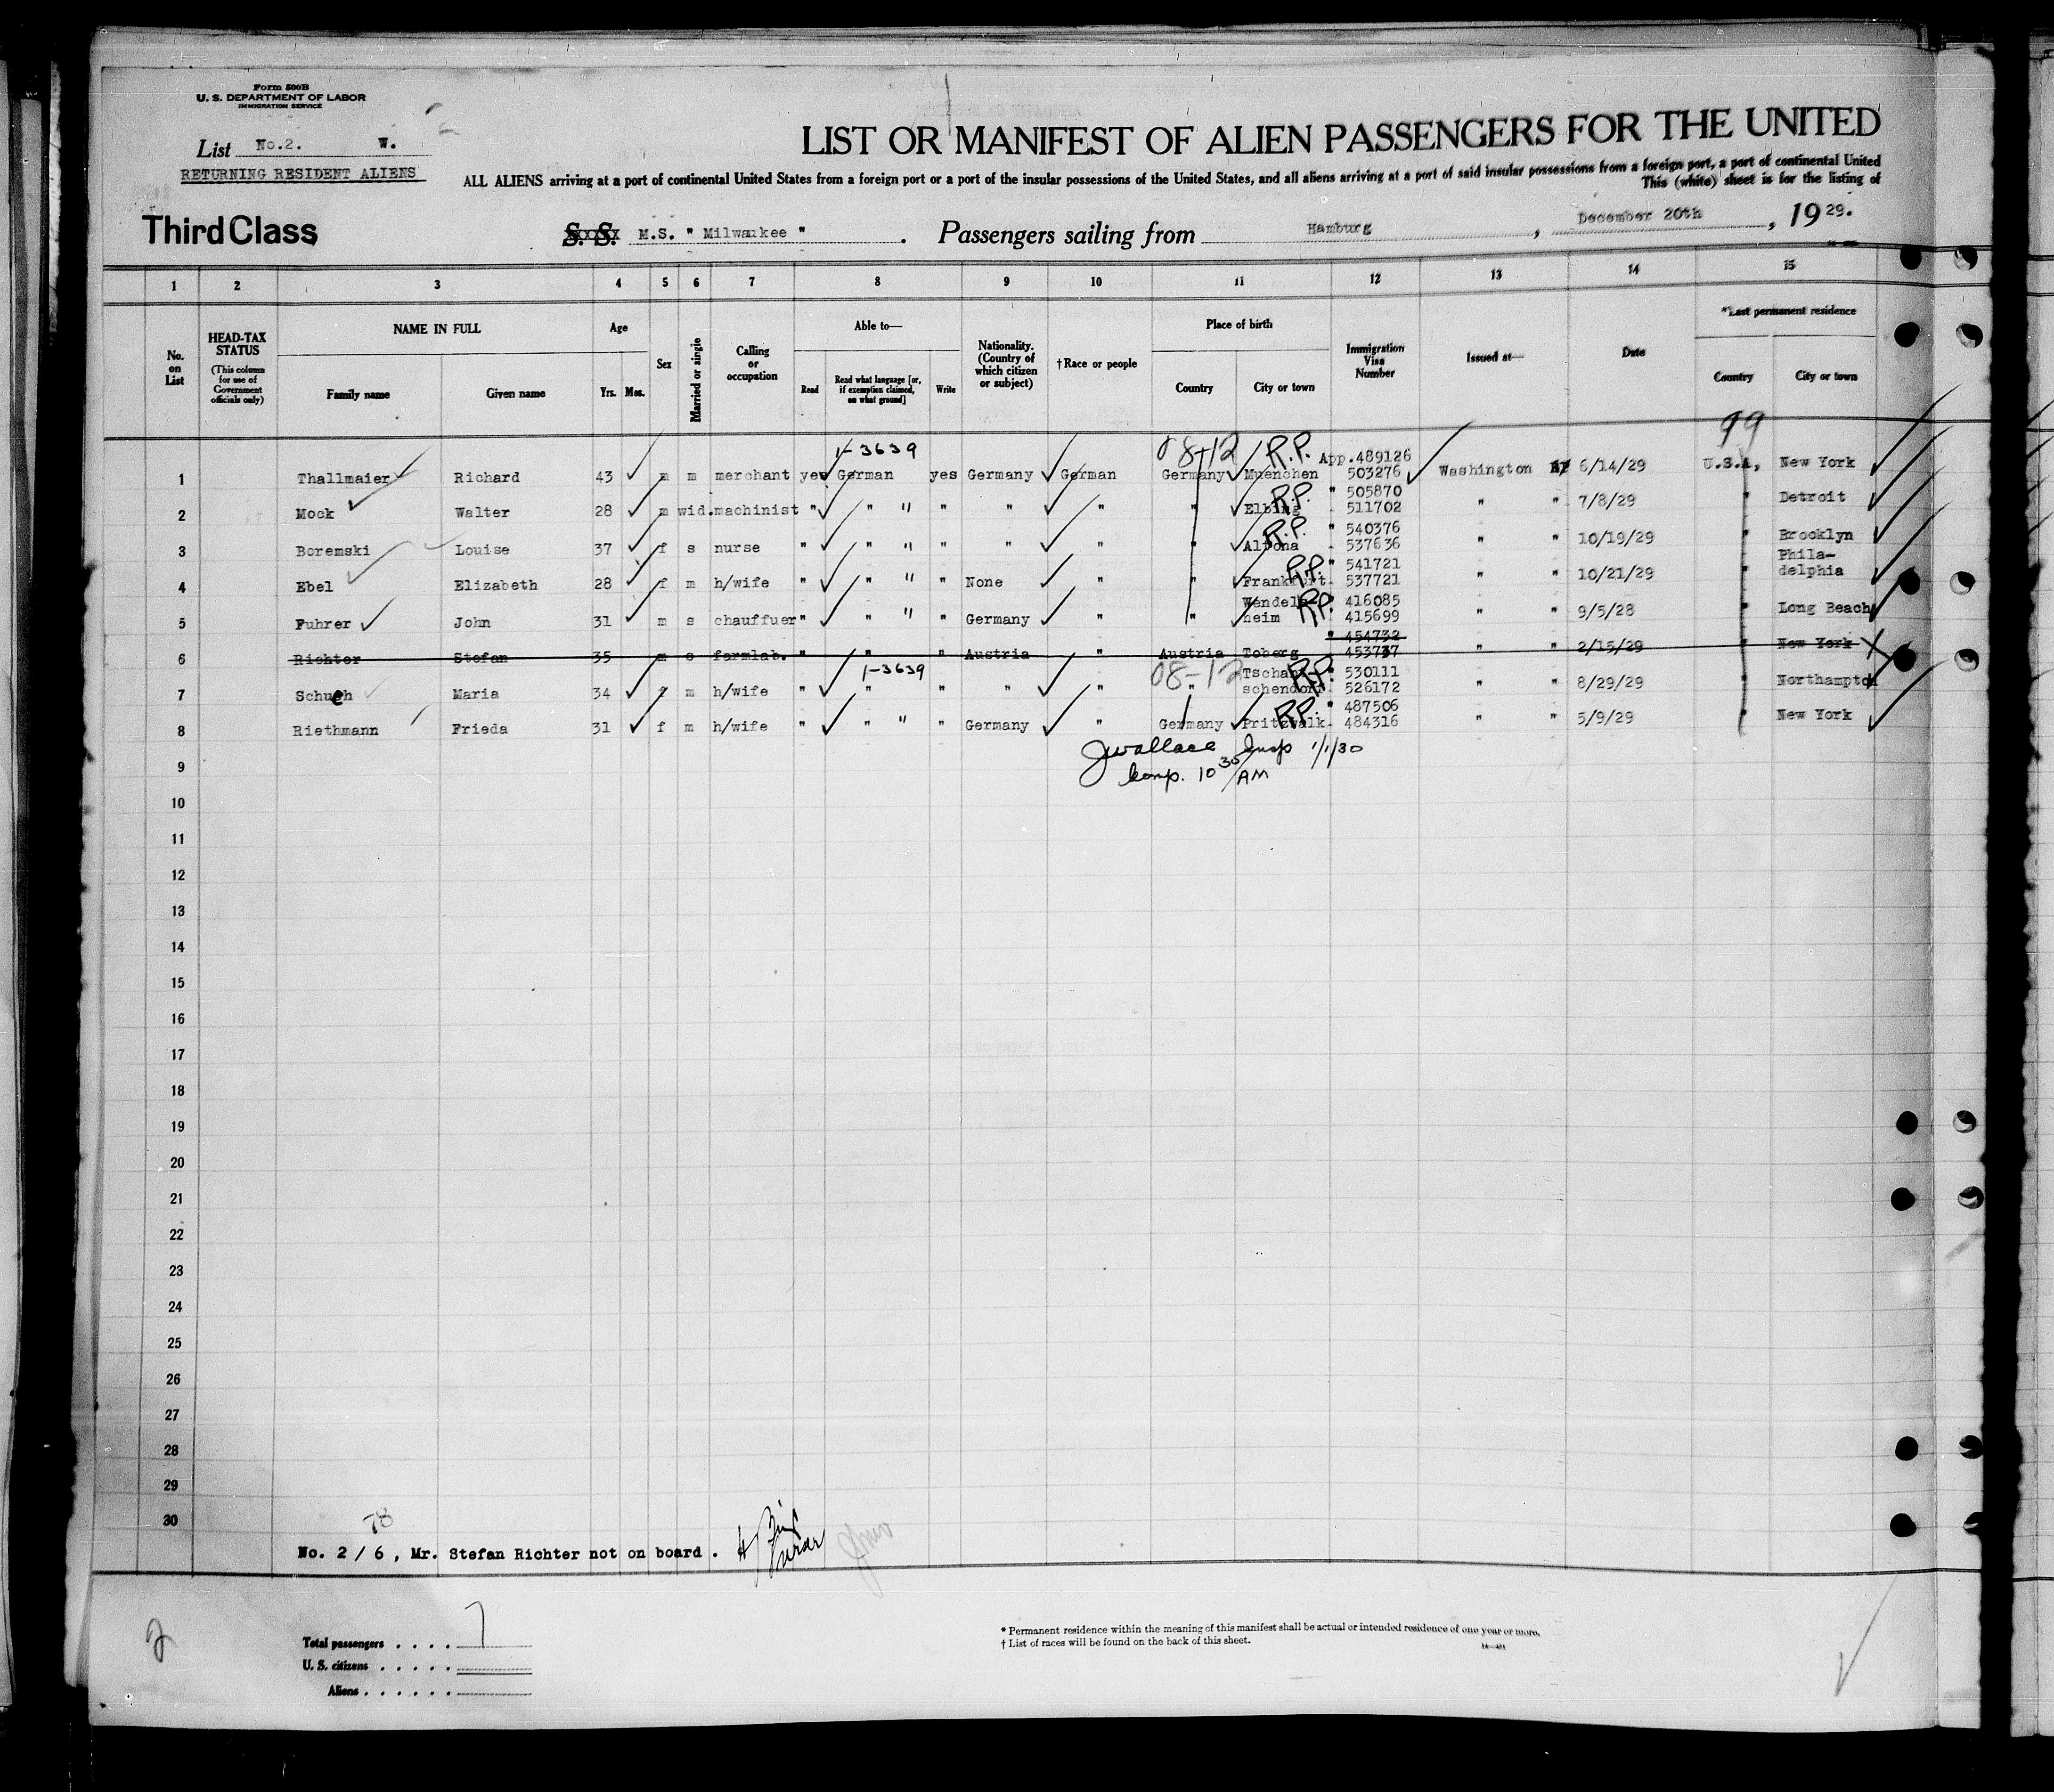 Form 500B
U. S. DEPARTMENT OF LABOR
IMMIGRATION SERVICE
List No.2. W.
RETURNING RESIDENT ALIENS
LIST OR MANIFEST OF ALIEN PASSENGERS FOR THE UNITED
ALL ALIENS arriving at a port of continental United States from a foreign port or a port of the insular possessions of the United States, and all aliens arriving at a port of said insular possessions from a foreign port, a port of continental United
This (white) sheet is for the listing of
Third Class S. S. M.S. " Milwaukee " . Passengers sailing from Hamburg , December 20th , 19 29.
1 2 3 4 5 6 7 8 9 10 11 12 13 14 15
No. on List HEAD-TAX STATUS (This column for use of Government officials only) NAME IN FULL Family name Given name Age Yrs. Mos. Sex Married or single Calling or occupation Able to— Read Read what language [or, if exemption claimed, on what ground] Write Nationality. (Country of which citizen or subject) † Race or people Place of birth Country City or town Immigration Visa Number Issued at— Date *Last permanent residence Country City or town
99
1-3639 08-12 R.P. App.489126
1 Thallmaier Richard 43 m m merchant yes German yes Germany German Germany Muenchen 503276 Washington 6/14/29 U.S.A, New York
R.P. " 505870
2 Mock Walter 28 m wid. machinist " " " " " " " Elbing 511702 " " 7/8/29 " Detroit
R.P. " 540376
3 Boremski Louise 37 f s nurse " " " " " " " Altona 537636 " " 10/19/29 " Brooklyn
R.P. " 541721 Phila-
4 Ebel Elizabeth 28 f m h/wife " " " " None " " Frankfurt 537721 " " 10/21/29 " delphia
Wendels- R.P. " 416085
5 Fuhrer John 31 m s chauffuer " " " " Germany " " heim 415699 " " 9/5/28 " Long Beach
" 454732
6 Richter Stefan 35 m s farmlab. " " " Austria " Austria Toberg 453737 " " 2/15/29 " New York X
1-3639 08-12 Tschap- R.P. " 530111
7 Schuch Maria 34 f m h/wife " " " " " " schendorf 526172 " " 8/29/29 " Northampton
R.P. " 487506
8 Riethmann Frieda 31 f m h/wife " " " " Germany " Germany Pritzwalk 484316 " " 5/9/29 " New York
JWallace Insp 1/1/30
9
Comp. 10 30 AM
10
11
12
13
14
15
16
17
18
19
20
21
22
23
24
25
26
27
28
29
30
78
No. 2 / 6 , Mr. Stefan Richter not on board .
2
Total passengers . . . . 7
U. S. citizens . . . . .
Aliens . . . . . .
* Permanent residence within the meaning of this manifest shall be actual or intended residence of one year or more.
† List of races will be found on the back of this sheet.